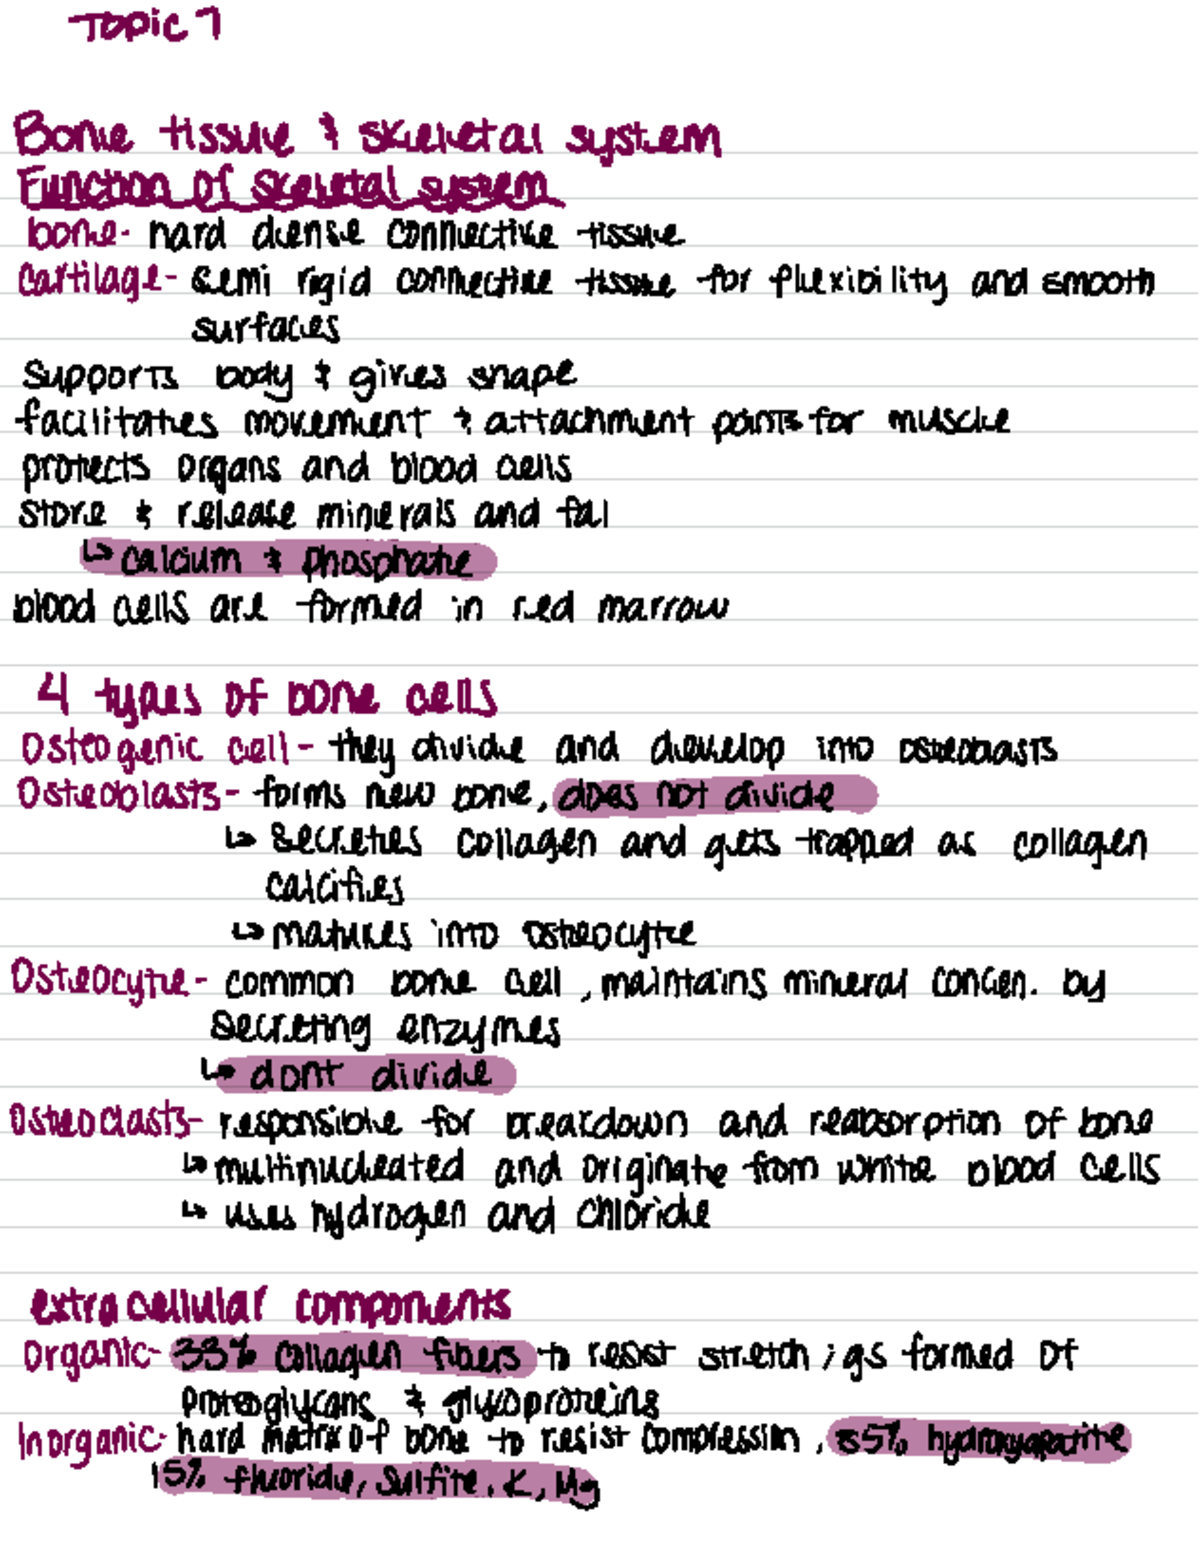 Topic 7
Bone tissue & skeletal system
Function of skeletal system
bone- hard dense connective tissue
Cartilage- semi rigid connective tissue for flexibility and smooth
surfaces
Supports body & gives shape
facilitates movement & attachment points for muscle
protects organs and blood cells
store & release minerals and fat
↳ calcium & phosphate
blood cells are formed in red marrow
4 types of bone cells
Osteogenic cell- they divide and develop into osteoblasts
Osteoblasts- forms new bone, does not divide
↳ secretes collagen and gets trapped as collagen
calcifies
↳ matures into osteocyte
Osteocyte- common bone cell, maintains mineral concen. by
secreting enzymes
↳ dont divide
Osteoclasts- responsible for breakdown and reabsorption of bone
↳ multinucleated and originate from white blood cells
↳ uses hydrogen and chloride
extracellular components
Organic- 33% collagen fibers to resist stretch ; gs formed of
proteoglycans & glycoproteins
Inorganic- hard matrix of bone to resist compression, 85% hydroxyapatite
15% fluoride, sulfite, K, Mg